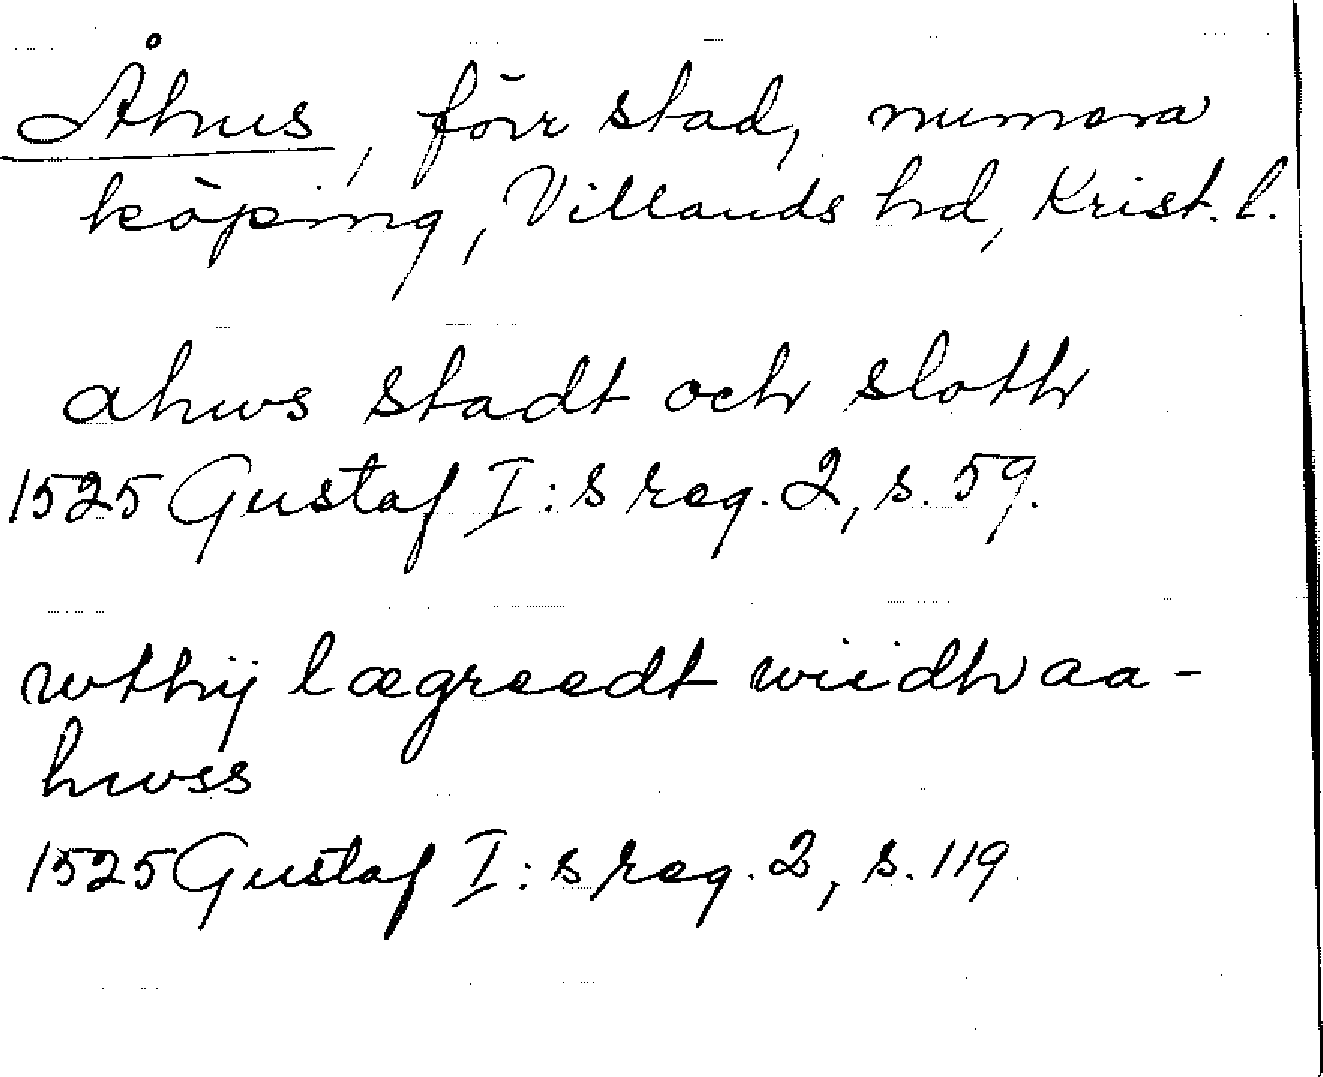 Åhus, förr stad, numera
köping, Villands hd, Krist. l.
ahws stadt och sloth
1525 Gustaf I:s reg. 2, s. 59.
wthij lægreedt wiidh aa-
hwss
1525 Gustaf I:s reg. 2, s. 119